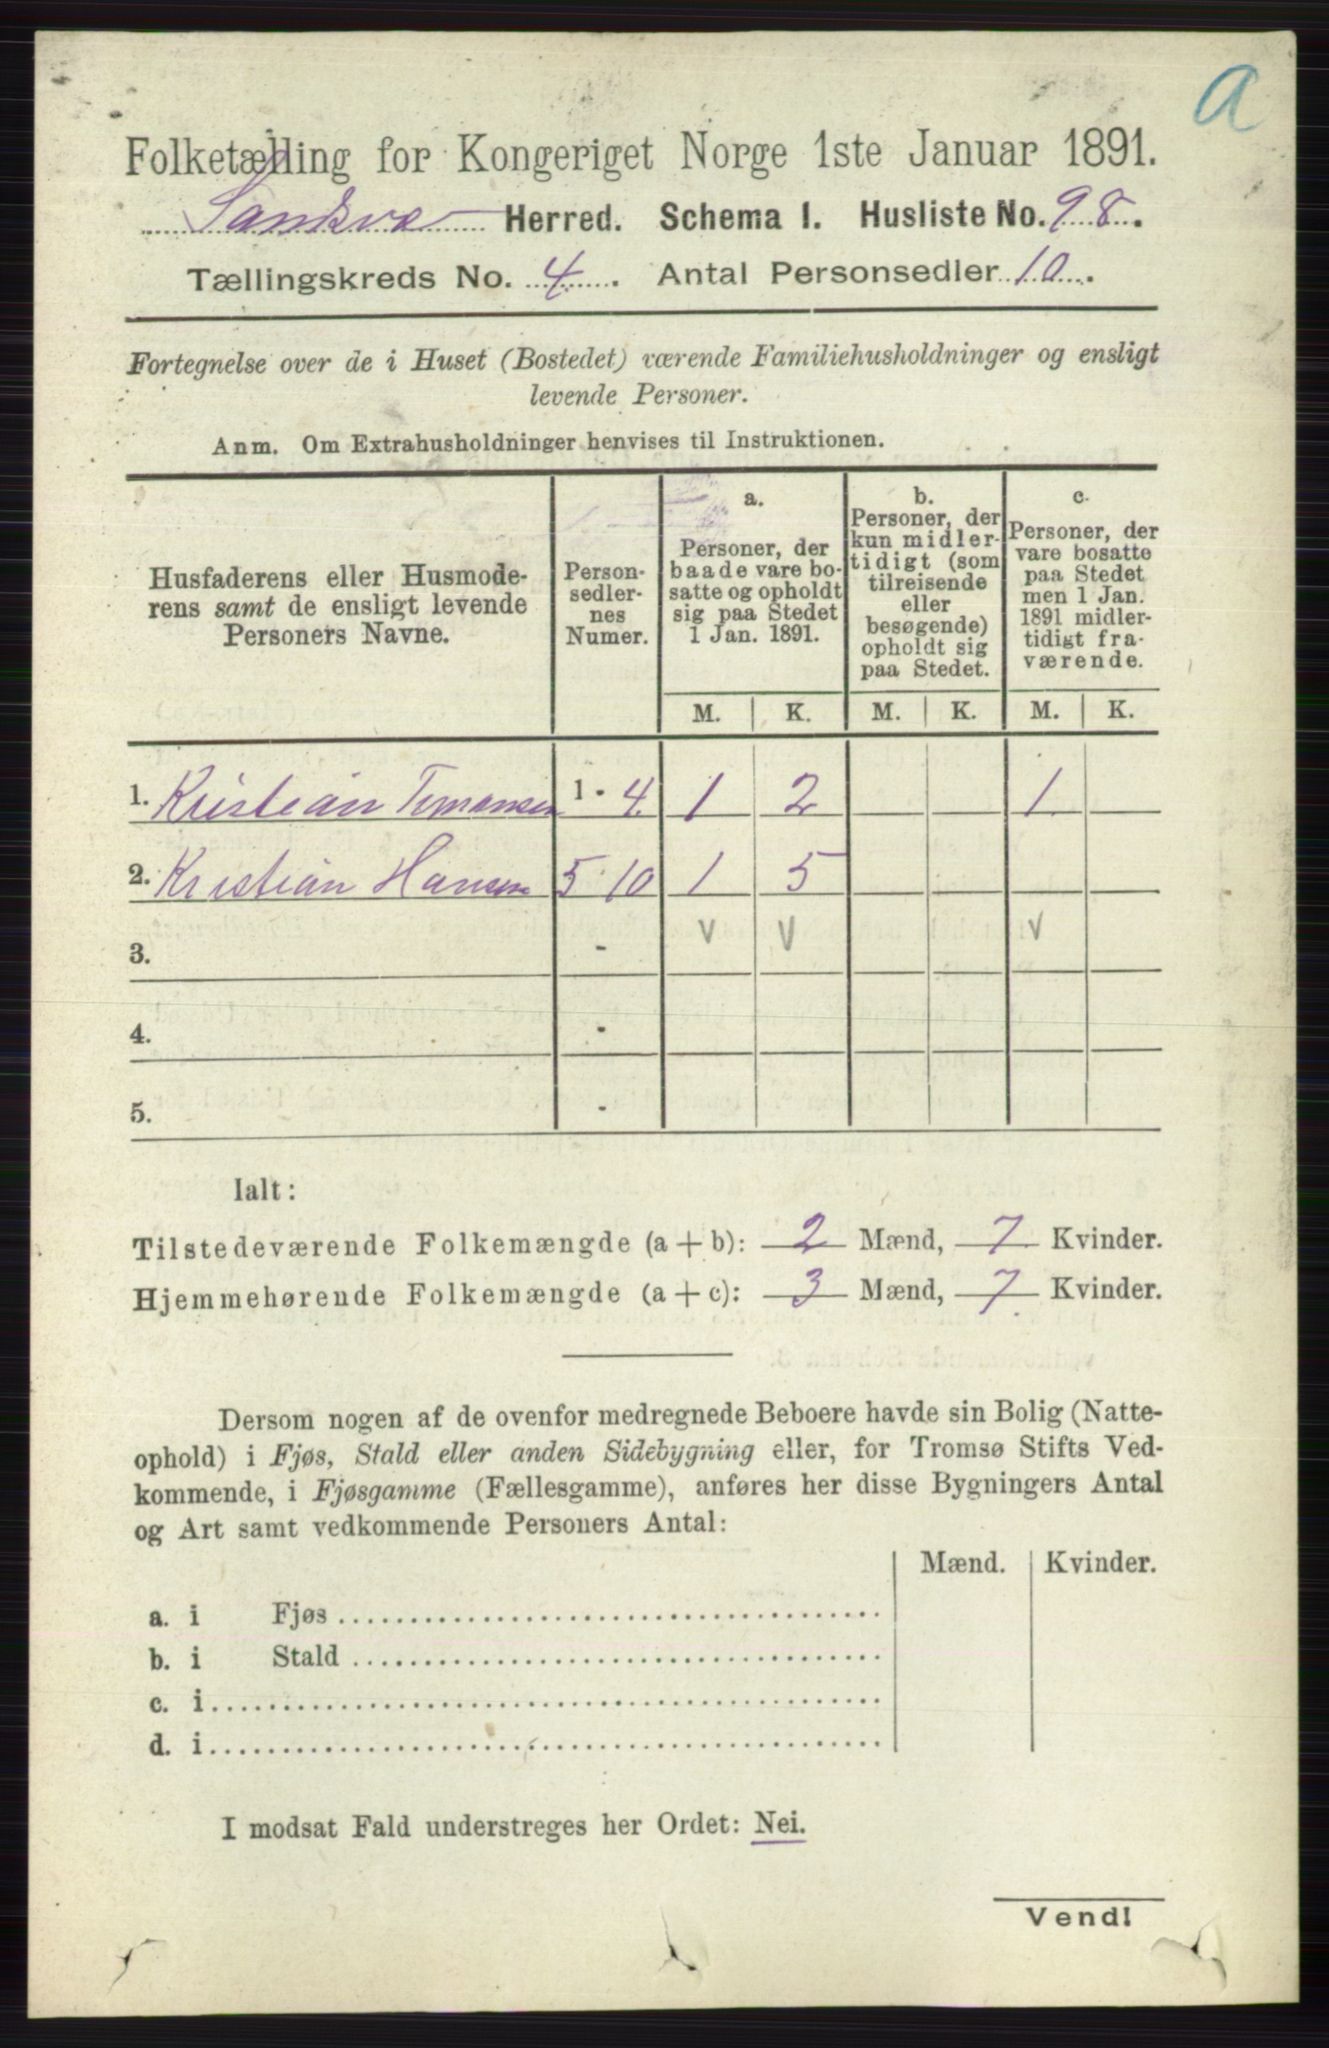 a
Folketælling for Kongeriget Norge 1ste Januar 1891.
Herred. Schema I. Husliste No. 98.
Tællingskreds No. 4. Antal Personsedler 10.
Fortegnelse over de i Huset (Bostedet) værende Familiehusholdninger og ensligt
levende Personer.
Anm. Om Extrahusholdninger henvises til Instruktionen.
Husfaderens eller Husmode-
rens samt de ensligt levende
Personers Navne.
Person-
sedler-
nes
Numer.
a.
Personer, der
baade vare bo-
satte og opholdt
sig paa Stedet
1 Jan. 1891.
b.
Personer, der
kun midler-
tidigt (som
tilreisende
eller
besøgende)
opholdt sig
paa Stedet.
c.
Personer, der
vare bosatte
paa Stedet
men 1 Jan.
1891 midler-
tidigt fra-
værende.
M. K. M. K. M. K.
1. Kristian 1 - 4 1 2 1
2. Kristian Hansen 5 10 1 5
3. - v v v
4. -
5. -
Ialt:
Tilstedeværende Folkemængde (a + b): 2 Mænd, 7 Kvinder.
Hjemmehørende Folkemængde (a + c): 3 Mænd, 7 Kvinder.
Dersom nogen af de ovenfor medregnede Beboere havde sin Bolig (Natte-
ophold) i Fjøs, Stald eller anden Sidebygning eller, for Tromsø Stifts Ved-
kommende, i Fjøsgamme (Fællesgamme), anføres her disse Bygningers Antal
og Art samt vedkommende Personers Antal:
Mænd. Kvinder.
a. i Fjøs
b. i Stald
c. i
d. i
I modsat Fald understreges her Ordet: Nei.
Vend!